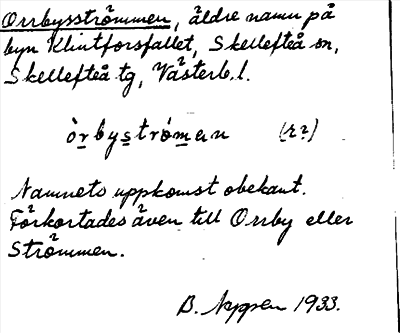 Orrbysströmmen, äldre namn på
byn Klintforsfallet, Skellefteå sn,
Skellefteå tg, Västerb. l.
òrbyströmen (r2)
Namnets uppkomst obekant.
Förkortades även till Orrby eller
Strömmen.
B. 1933.